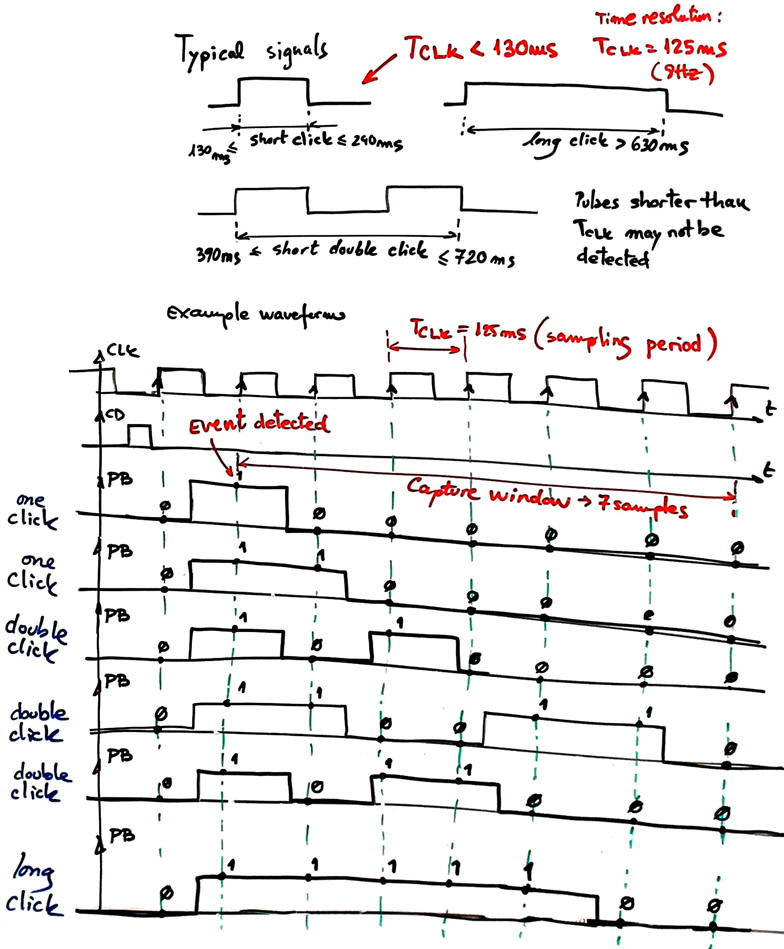 Time resolution:
Typical signals
TCLK < 130ms
TCLK = 125ms
(8Hz)
130ms ≤ short click ≤ 240ms
long click > 630ms
390ms ≤ short double click ≤ 720ms
Pulses shorter than
TCLK may not be
detected
Example waveforms
TCLK = 125ms (sampling period)
CLK
t
CD
Event detected
t
PB
Capture window → 7 samples
one
click
0 1 0 0 0 0 0 0
PB
one
click
0 1 1 0 0 0 0 0
PB
double
click
0 1 0 1 0 0 0 0
PB
double
click
0 1 1 0 0 1 1 0
PB
double
click
0 1 0 1 1 0 0 0
PB
long
click
0 1 1 1 1 1 0 0